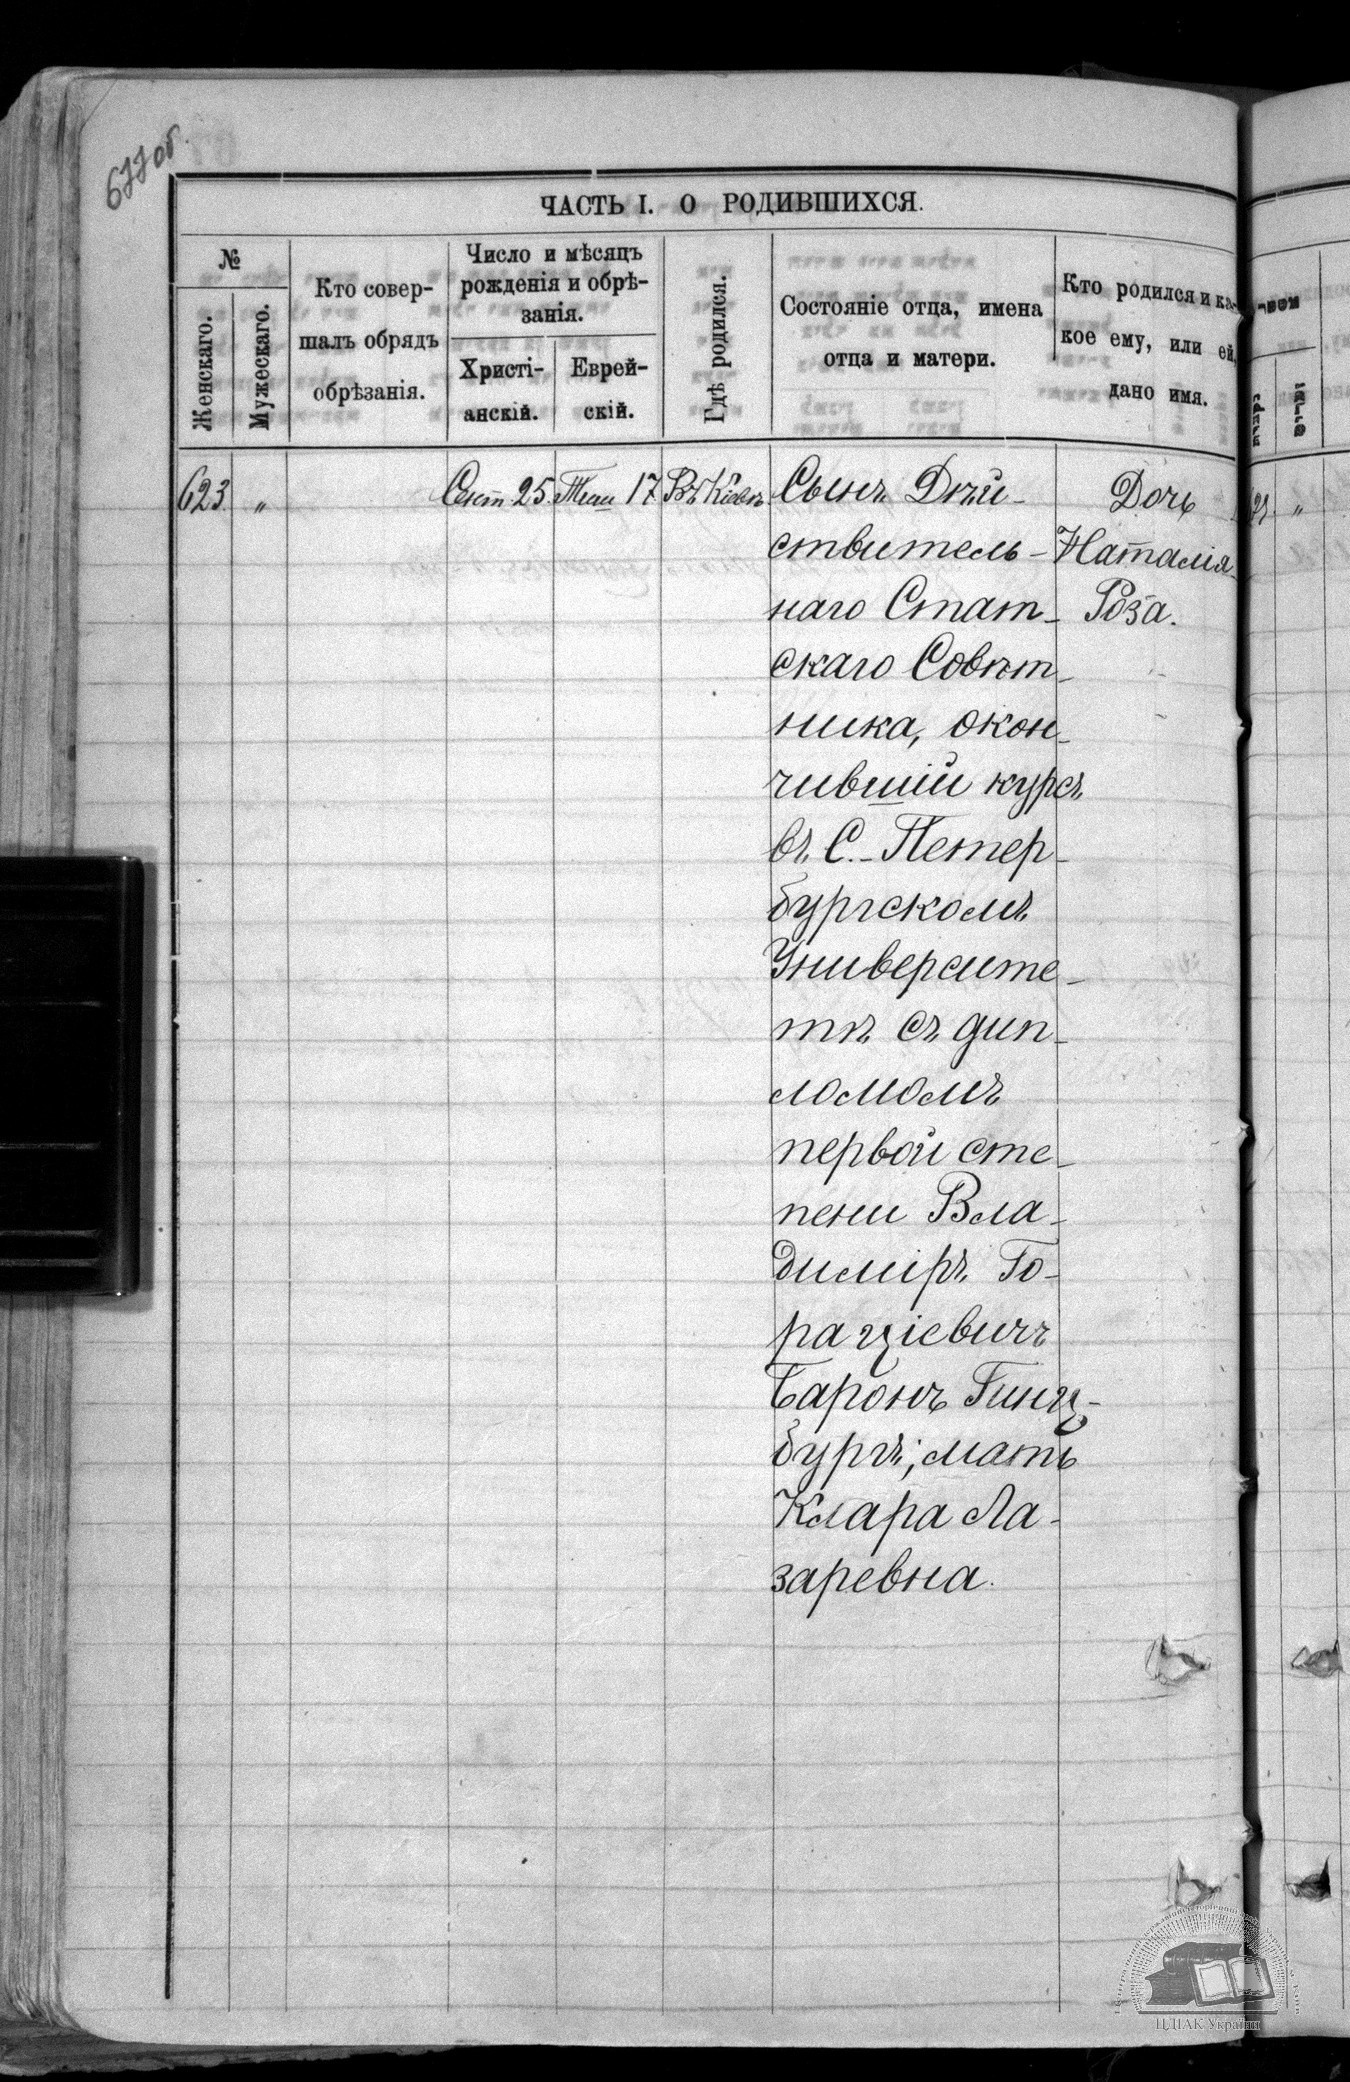 677 об.
ЧАСТЬ I. О РОДИВШИХСЯ.
№
Женскаго.
Мужескаго.
Кто совер-
шалъ обрядъ
обрѣзанія.
Число и мѣсяцъ
рожденія и обрѣ-
занія.
Христі-
анскій.
Еврей-
скій.
Гдѣ родился.
Состояніе отца, имена
отца и матери.
Кто родился и ка-
кое ему, или ей,
дано имя.
623. „ Сент 25. Тиш 17 Въ Кіевѣ.
Сынъ Дѣй-
ствитель-
наго Стат-
скаго Совѣт-
ника, окон-
чившій курсъ
въ С.-Петер-
бургскомъ
Университе-
тѣ съ дип-
ломомъ
первой сте-
пени Вла-
димиръ Го-
раціевичъ
Баронъ Гинц-
бургъ; мать
Клара Ла-
заревна.
Дочь
Наталія-
Роза.
ЦДІАК України